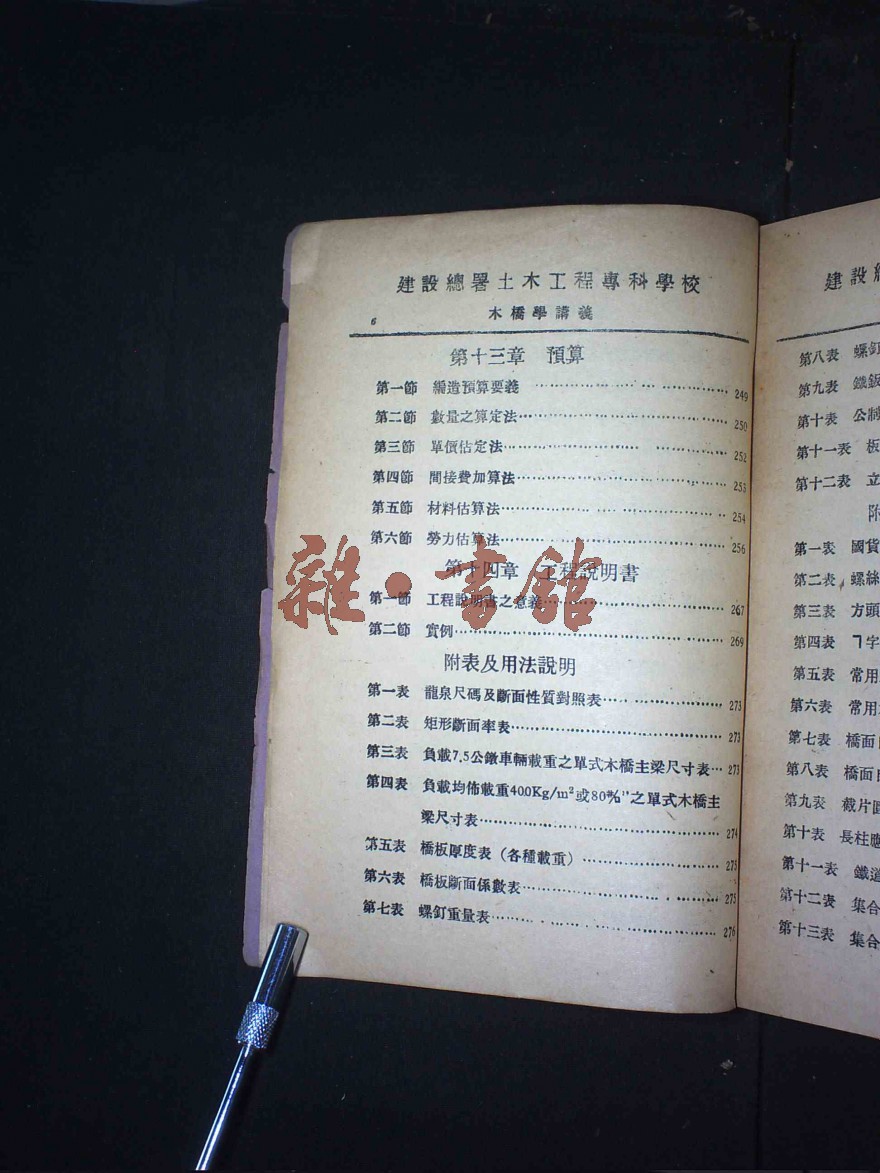 建設總署土木工程專科學校
木橋學講義
6
第十三章 預算
第一節 編造預算要義 249
第二節 數量之算定法 250
第三節 單價估定法 252
第四節 間接費加算法 253
第五節 材料估算法 254
第六節 勞力估算法 256
第十四章 工程說明書
第一節 工程說明書之意義 267
第二節 實例 269
附表及用法說明
第一表 龍泉尺碼及斷面性質對照表 273
第二表 矩形斷面率表 273
第三表 負載7.5公鐓車輛載重之單式木橋主梁尺寸表 273
第四表 負載均佈載重400Kg/m²或80#/□'之單式木橋主
梁尺寸表 274
第五表 橋板厚度表（各種載重） 275
第六表 橋板斷面係數表 275
第七表 螺釘重量表 276
雜·書館
建設
第八表 螺釘
第九表 鐵鈑
第十表 公制
第十一表 板
第十二表 立
附
第一表 國貨
第二表 螺絲
第三表 方頭
第四表 ㄱ字
第五表 常用
第六表 常用
第七表 橋面
第八表 橋面
第九表 截片
第十表 長柱應
第十一表 鐵道
第十二表 集合
第十三表 集合